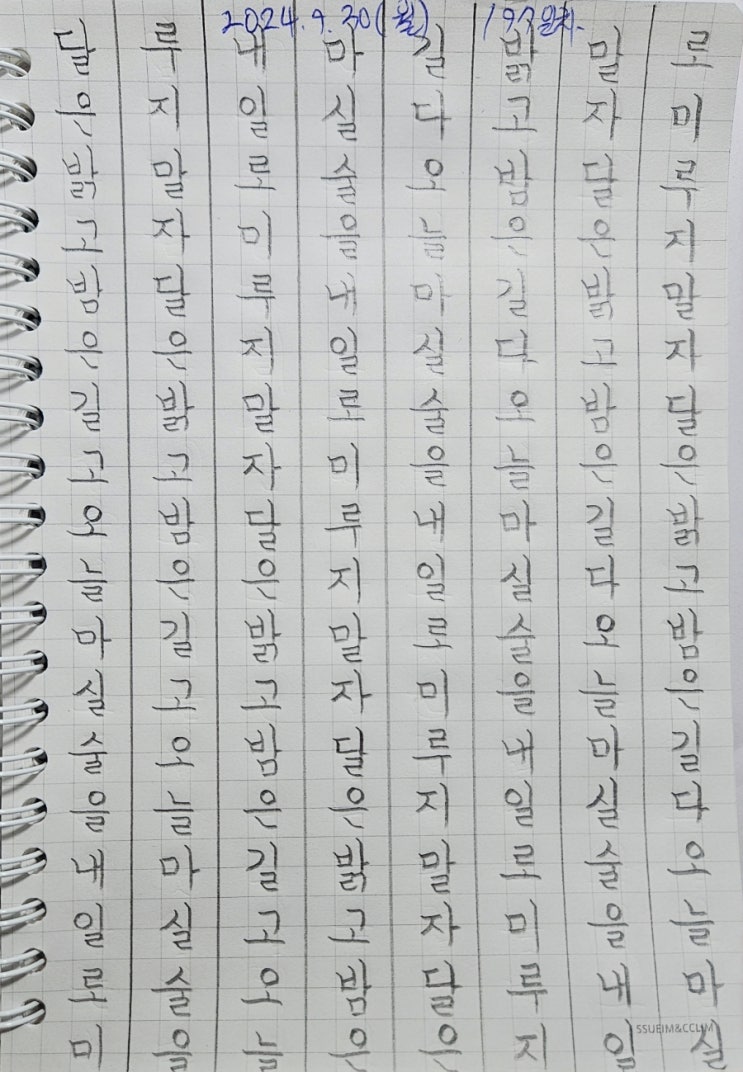 2024. 9. 30(월) 197일차.
달이밝고밤이길고오늘마실술을내일로미
루지말자달이밝고밤이길고오늘마실술을
내일로미루지말자달이밝고밤이길고오늘
마실술을내일로미루지말자달이밝고밤이
길다오늘마실술을내일로미루지말자달이
밝고밤이길다오늘마실술을내일로미루지
말자달이밝고밤이길다오늘마실술을내일
로미루지말자달이밝고밤이길다오늘마실
SSUEIM&CCLIM